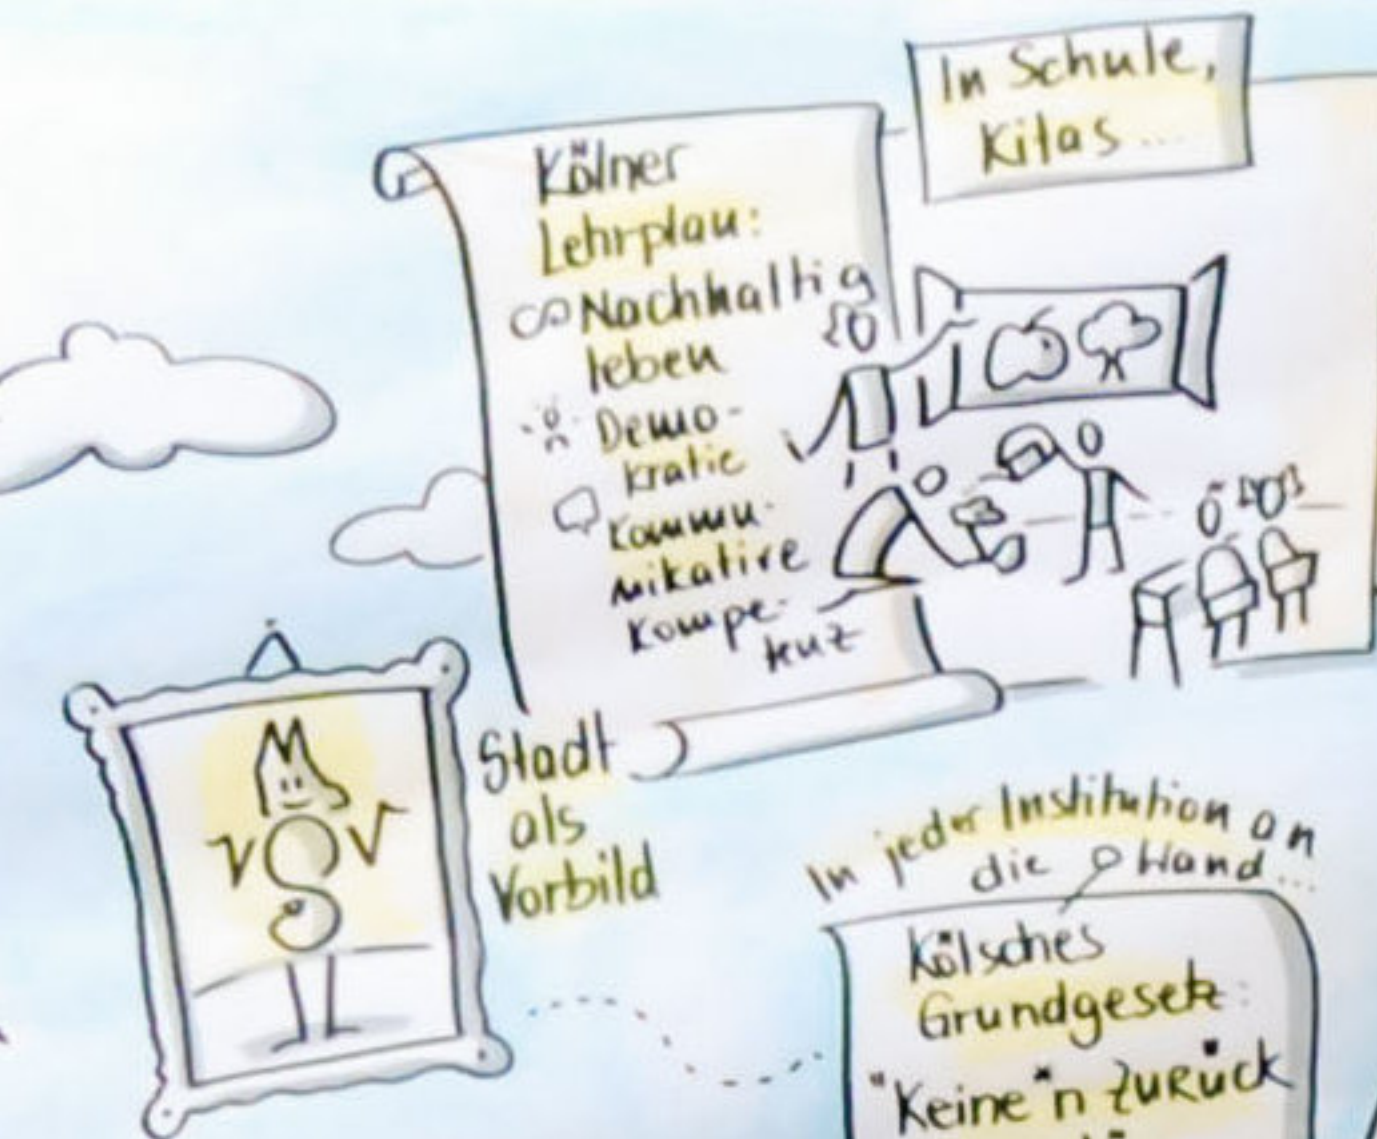 In Schule,
Kitas...
Kölner
Lehrplan:
Nachhaltig
leben
Demo-
kratie
Kommu-
nikative
Kompe-
tenz
Stadt
als
Vorbild
In jeder Institution an
die Wand...
Kölsches
Grundgesetz:
"Keine*n zurück